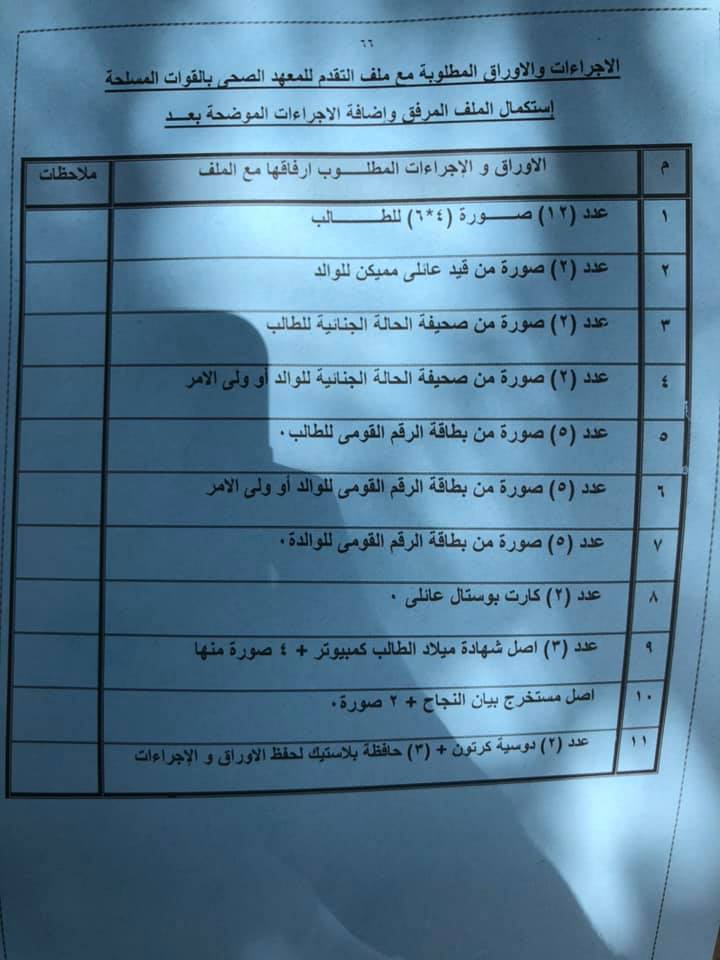 ٦٦
الاجراءات والاوراق المطلوبة مع ملف التقدم للمعهد الصحى بالقوات المسلحة
إستكمال الملف المرفق وإضافة الاجراءات الموضحة بعد
م الاوراق و الإجراءات المطلوب ارفاقها مع الملف ملاحظات
١ عدد (١٢) صورة (٤*٦) للطالب
٢ عدد (٢) صورة من قيد عائلى مميكن للوالد
٣ عدد (٢) صورة من صحيفة الحالة الجنائية للطالب
٤ عدد (٢) صورة من صحيفة الحالة الجنائية للوالد أو ولى الامر
٥ عدد (٥) صورة من بطاقة الرقم القومى للطالب٠
٦ عدد (٥) صورة من بطاقة الرقم القومى للوالد أو ولى الامر
٧ عدد (٥) صورة من بطاقة الرقم القومى للوالدة٠
٨ عدد (٢) كارت بوستال عائلى ٠
٩ عدد (٣) اصل شهادة ميلاد الطالب كمبيوتر + ٤ صورة منها
١٠ اصل مستخرج بيان النجاح + ٢ صورة٠
١١ عدد (٢) دوسية كرتون + (٣) حافظة بلاستيك لحفظ الاوراق و الإجراءات